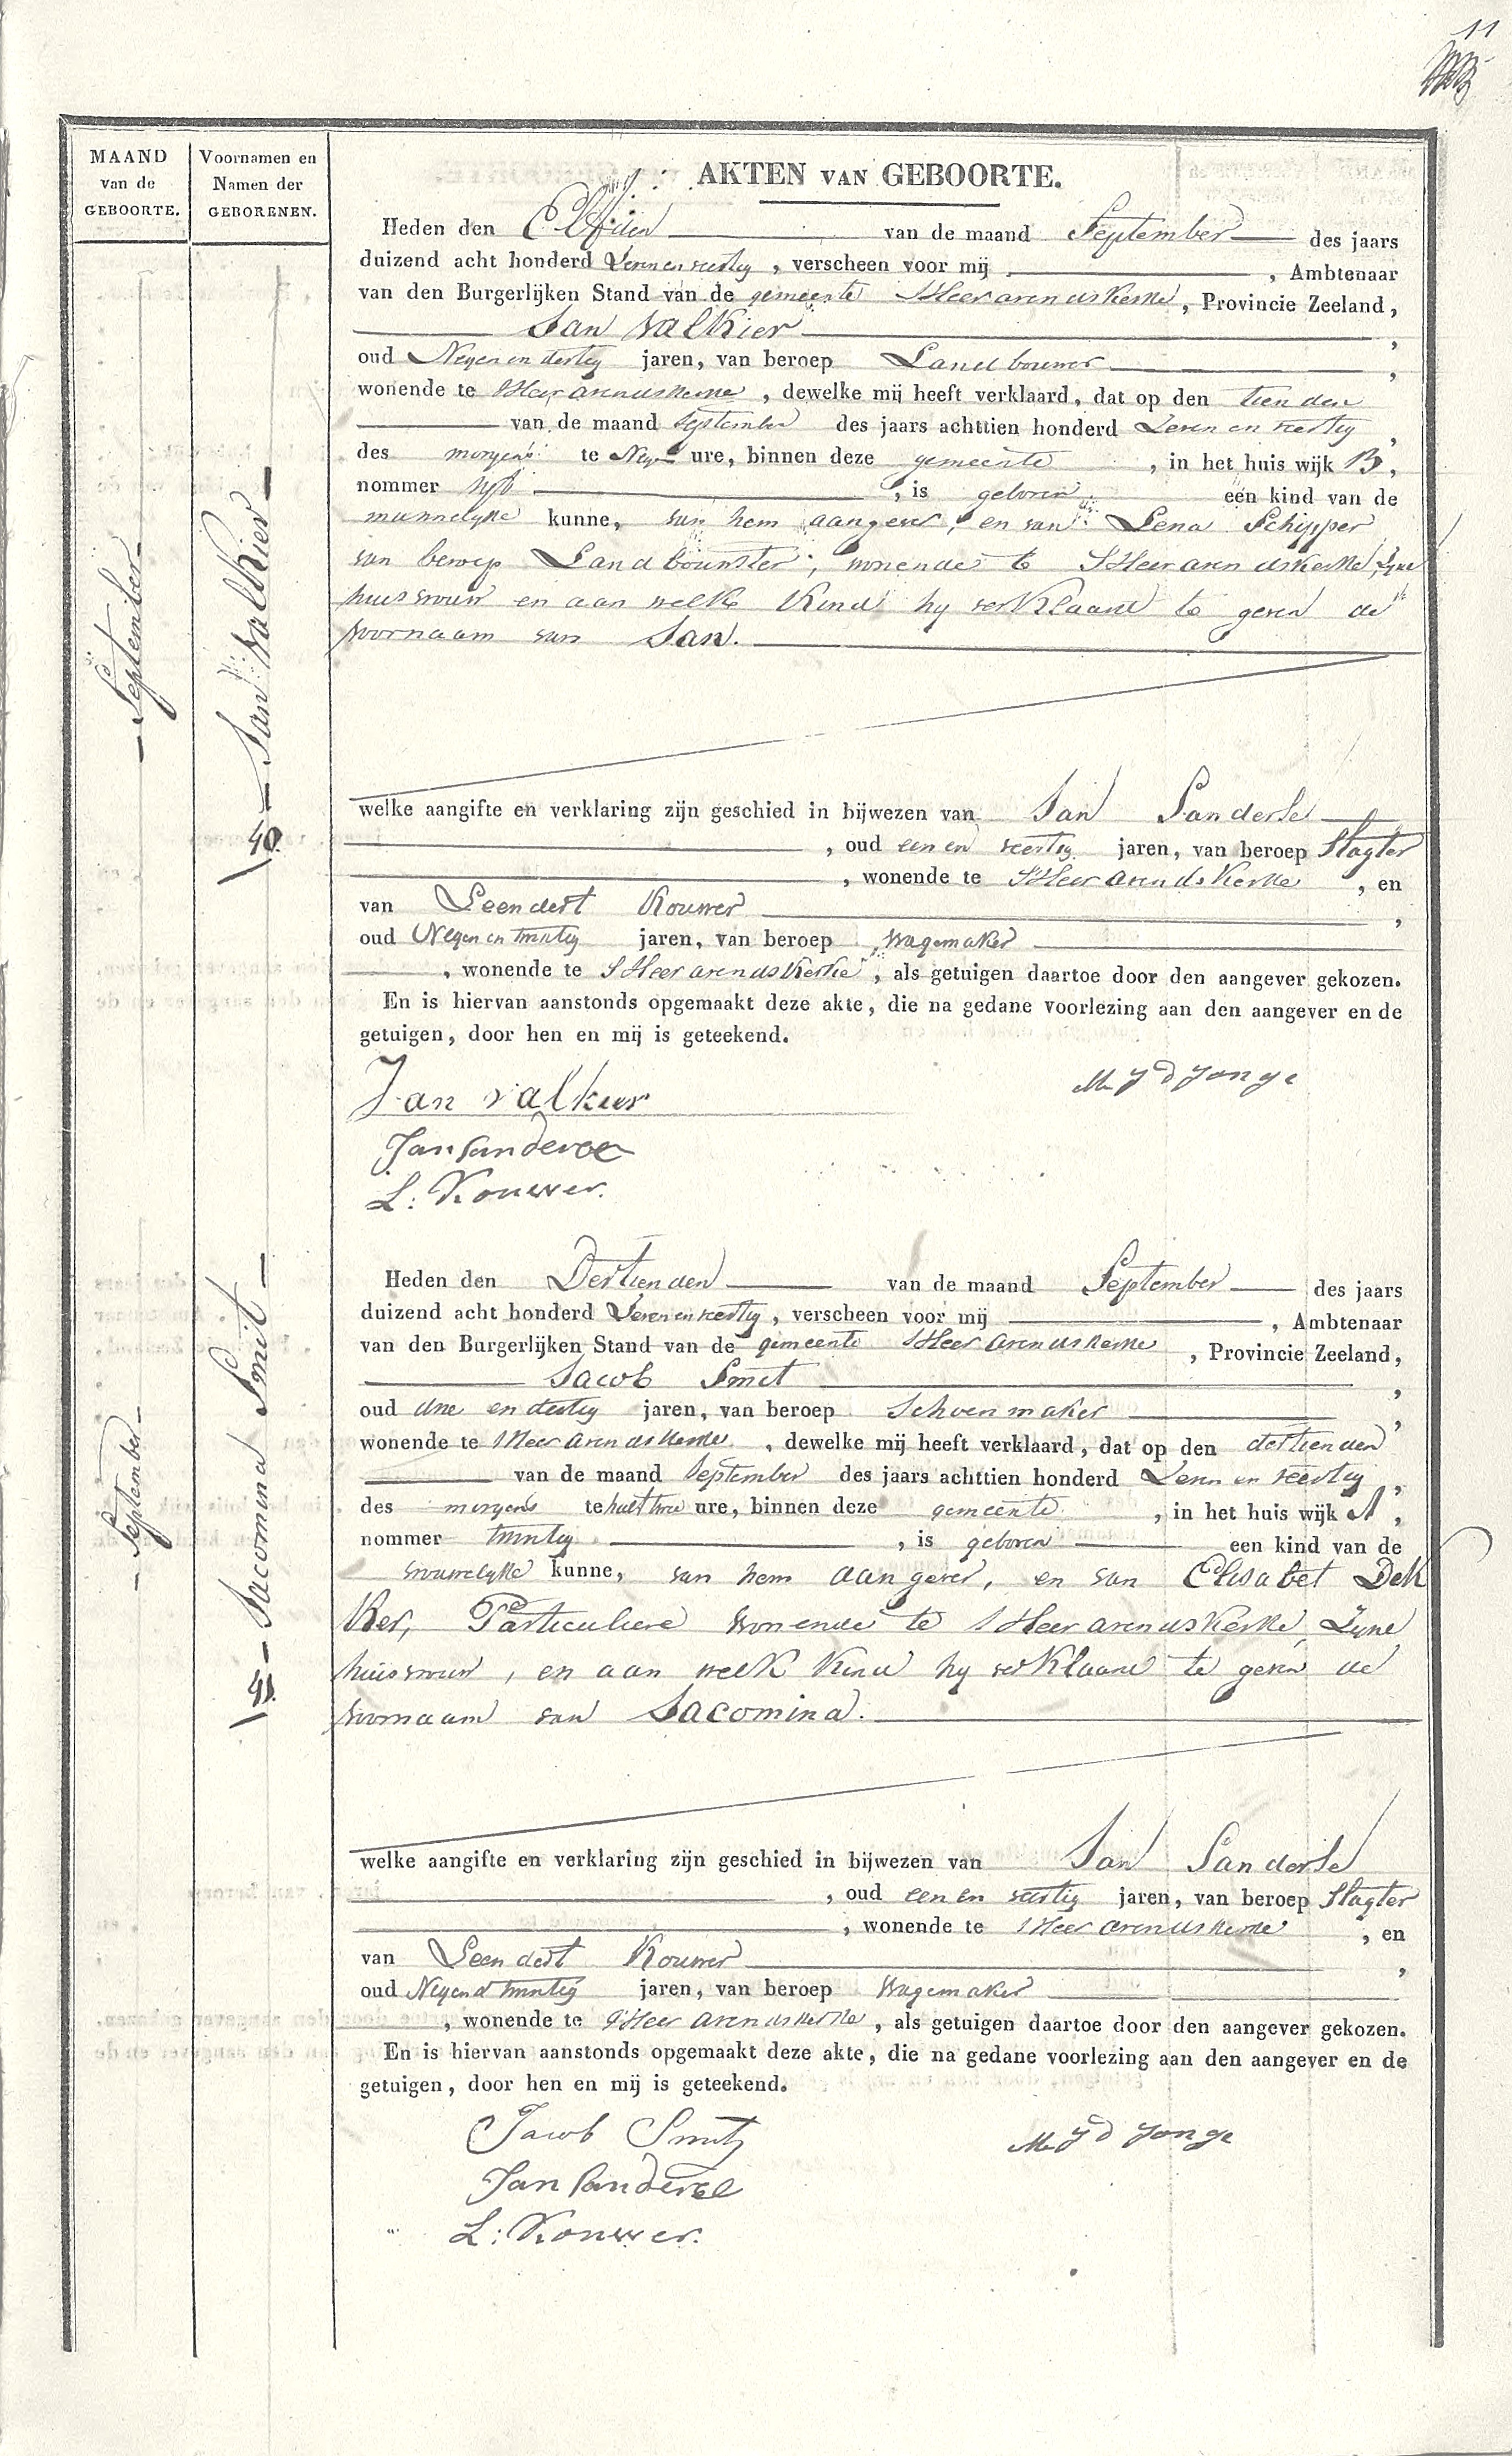 11
MAAND
van de
GEBOORTE.
Voornamen en
Namen der
GEBORENEN.
AKTEN VAN GEBOORTE.
— September —
40. — Jan Valkier —
Heden den Elfden van de maand September des jaars
duizend acht honderd Zeven en veertig, verscheen voor mij , Ambtenaar
van den Burgerlijken Stand van de gemeente SHeerarendskerke, Provincie Zeeland,
Jan Valkier ,
oud Negen en dertig jaren, van beroep Landbouwer ,
wonende te SHeerarendskerke, dewelke mij heeft verklaard, dat op den tienden
van de maand September des jaars achttien honderd Zeven en veertig,
des morgens te ure, binnen deze gemeente, in het huis wijk B,
nommer , is geboren een kind van de
mannelyke kunne, van hem aangever, en van Lena Schipper
van beroep Landbouwster, wonende te SHeerarendskerke, Zyne
huisvrouw en aan welk Kind hy verklaard te geven de
voornaam van Jan.
welke aangifte en verklaring zijn geschied in bijwezen van Jan Sanderse
, oud een en veertig jaren, van beroep Slagter
, wonende te SHeerarendskerke, en
van Leendert Kouwer ,
oud Negen en twintig jaren, van beroep Wagemaker
, wonende te SHeerarendskerke, als getuigen daartoe door den aangever gekozen.
En is hiervan aanstonds opgemaakt deze akte, die na gedane voorlezing aan den aangever en de
getuigen, door hen en mij is geteekend.
Jan Valkier
M J d Jonge
Jan Sanderse
L: Kouwer.
— September —
41. — Jacomina Smit —
Heden den Dertienden van de maand September des jaars
duizend acht honderd Zeven en veertig, verscheen voor mij , Ambtenaar
van den Burgerlijken Stand van de gemeente SHeerarendskerke, Provincie Zeeland,
Jacob Smit ,
oud drie en dertig jaren, van beroep Schoenmaker ,
wonende te SHeerarendskerke, dewelke mij heeft verklaard, dat op den dertienden
van de maand September des jaars achttien honderd Zeven en veertig,
des morgens te half twee ure, binnen deze gemeente, in het huis wijk A,
nommer twintig , is geboren een kind van de
vrouwelyke kunne, van hem aangever, en van Elisabet Dek
ker, Particuliere wonende te SHeerarendskerke, Zyne
huisvrouw, en aan welk Kind hy verklaard te geven de
voornaam van Jacomina.
welke aangifte en verklaring zijn geschied in bijwezen van Jan Sanderse
, oud een en veertig jaren, van beroep Slagter
, wonende te SHeerarendskerke, en
van Leendert Kouwer ,
oud Negen en twintig jaren, van beroep Wagemaker
, wonende te SHeerarendskerke, als getuigen daartoe door den aangever gekozen.
En is hiervan aanstonds opgemaakt deze akte, die na gedane voorlezing aan den aangever en de
getuigen, door hen en mij is geteekend.
Jacob Smit
M J d Jonge
Jan Sanderse
L: Kouwer.